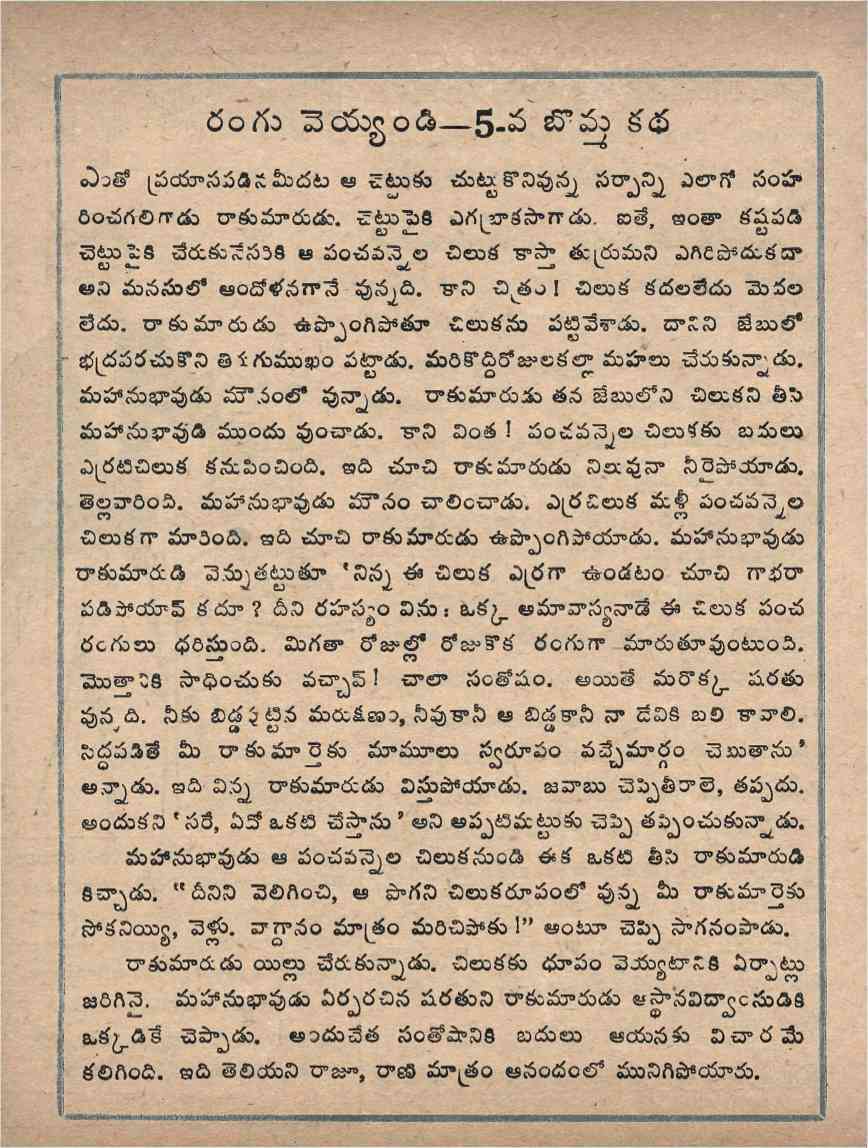 రంగు వెయ్యండి—5-వ బొమ్మ కథ
ఎంతో ప్రయాసపడినమీదట ఆ చెట్టుకు చుట్టుకొనివున్న సర్పాన్ని ఎలాగో సంహ
రించగలిగాడు రాకుమారుడు. చెట్టుపైకి ఎగబ్రాకసాగాడు. ఐతే, ఇంతా కష్టపడి
చెట్టుపైకి చేరుకునేసరికి ఆ పంచవన్నెల చిలుక కాస్తా తుర్రుమని ఎగిరిపోదుకదా
అని మనసులో ఆందోళనగానే వున్నది. కాని చిత్రం! చిలుక కదలలేదు మెదల
లేదు. రాకుమారుడు ఉప్పొంగిపోతూ చిలుకను పట్టివేశాడు. దానిని జేబులో
భద్రపరచుకొని తిరగుముఖం పట్టాడు. మరికొద్దిరోజులకల్లా మహలు చేరుకున్నాడు.
మహానుభావుడు మౌనంలో వున్నాడు. రాకుమారుడు తన జేబులోని చిలుకని తీసి
మహానుభావుడి ముందు వుంచాడు. కాని వింత! పంచవన్నెల చిలుకకు బదులు
ఎర్రటిచిలుక కనుపించింది. ఇది చూచి రాకుమారుడు నిలువునా నీరైపోయాడు.
తెల్లవారింది. మహానుభావుడు మౌనం చాలించాడు. ఎర్రచిలుక మళ్లీ పంచవన్నెల
చిలుకగా మారింది. ఇది చూచి రాకుమారుడు ఉప్పొంగిపోయాడు. మహానుభావుడు
రాకుమారుడి వెన్నుతట్టుతూ 'నిన్న ఈ చిలుక ఎర్రగా ఉండటం చూచి గాభరా
పడిపోయావ్ కదూ? దీని రహస్యం విను: ఒక్క అమావాస్యనాడే ఈ చిలుక పంచ
రంగులు ధరిస్తుంది. మిగతా రోజుల్లో రోజుకొక రంగుగా మారుతూవుంటుంది.
మొత్తానికి సాధించుకు వచ్చావ్! చాలా సంతోషం. అయితే మరొక్క షరతు
వున్నది. నీకు బిడ్డపుట్టిన మరుక్షణం, నీవుకానీ ఆ బిడ్డకానీ నా దేవికి బలి కావాలి.
సిద్ధపడితే మీ రాకుమార్తెకు మామూలు స్వరూపం వచ్చేమార్గం చెబుతాను'
అన్నాడు. ఇది విన్న రాకుమారుడు విస్తుపోయాడు. జవాబు చెప్పితీరాలె, తప్పదు.
అందుకని 'సరే, ఏదో ఒకటి చేస్తాను' అని అప్పటిమట్టుకు చెప్పి తప్పించుకున్నాడు.
మహానుభావుడు ఆ పంచవన్నెల చిలుకనుండి ఈక ఒకటి తీసి రాకుమారుడి
కిచ్చాడు. "దీనిని వెలిగించి, ఆ పొగని చిలుకరూపంలో వున్న మీ రాకుమార్తెకు
సోకనియ్యి, వెళ్లు. వాగ్దానం మాత్రం మరిచిపోకు!" అంటూ చెప్పి సాగనంపాడు.
రాకుమారుడు యిల్లు చేరుకున్నాడు. చిలుకకు ధూపం వెయ్యటానికి ఏర్పాట్లు
జరిగినై. మహానుభావుడు ఏర్పరచిన షరతుని రాకుమారుడు ఆస్థానవిద్వాంసుడికి
ఒక్కడికే చెప్పాడు. అందుచేత సంతోషానికి బదులు ఆయనకు విచారమే
కలిగింది. ఇది తెలియని రాజూ, రాణి మాత్రం ఆనందంలో మునిగిపోయారు.